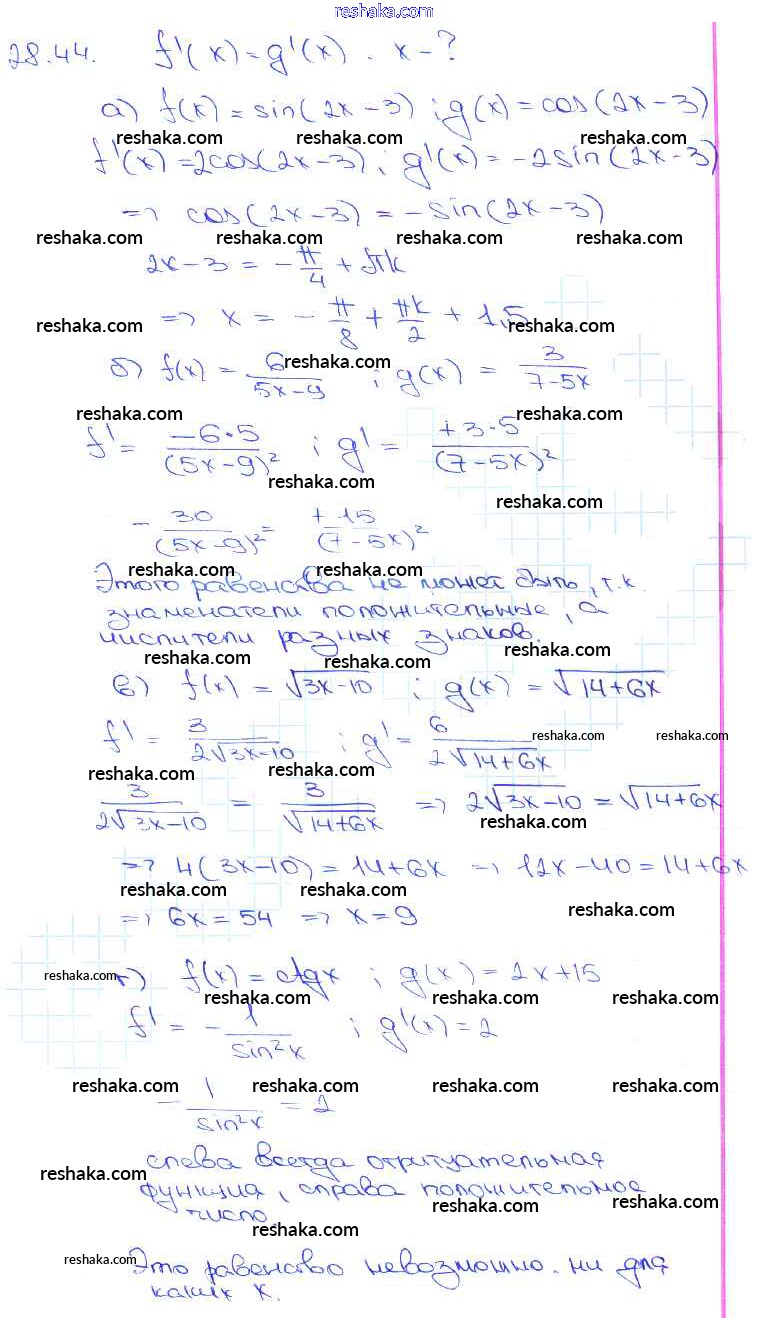 reshaka.com
28.44. f'(x)=g'(x). x-?
а) f(x)=sin(2x-3); g(x)=cos(2x-3)
reshaka.com reshaka.com reshaka.com
f'(x)=2cos(2x-3); g'(x)=-2sin(2x-3)
=> cos(2x-3)=-sin(2x-3)
reshaka.com reshaka.com reshaka.com reshaka.com
2x-3=-π/4+πk
=> x=-π/8+πk/2+1,5
reshaka.com reshaka.com
reshaka.com
б) f(x)=6/(5x-9); g(x)=3/(7-5x)
reshaka.com reshaka.com
f'=-6·5/(5x-9)²; g'=+3·5/(7-5x)²
reshaka.com
reshaka.com
-30/(5x-9)²=+15/(7-5x)²
reshaka.com reshaka.com
Этого равенства не может быть, т.к.
знаменатели положительные, а
числители разных знаков.
reshaka.com reshaka.com reshaka.com
в) f(x)=√(3x-10); g(x)=√(14+6x)
f'=3/(2√(3x-10)); g'=6/(2√(14+6x))
reshaka.com reshaka.com
reshaka.com reshaka.com
3/(2√(3x-10))=3/√(14+6x) => 2√(3x-10)=√(14+6x)
reshaka.com
=> 4(3x-10)=14+6x => 12x-40=14+6x
reshaka.com reshaka.com
=> 6x=54 => x=9
reshaka.com
reshaka.com
г) f(x)=ctgx; g(x)=2x+15
reshaka.com reshaka.com reshaka.com
f'=-1/sin²x; g'(x)=2
reshaka.com reshaka.com reshaka.com reshaka.com
-1/sin²x=2
слева всегда отрицательная
reshaka.com
функция, справа положительное
reshaka.com reshaka.com
число.
reshaka.com
Это равенство невозможно. ни для
reshaka.com
каких x.